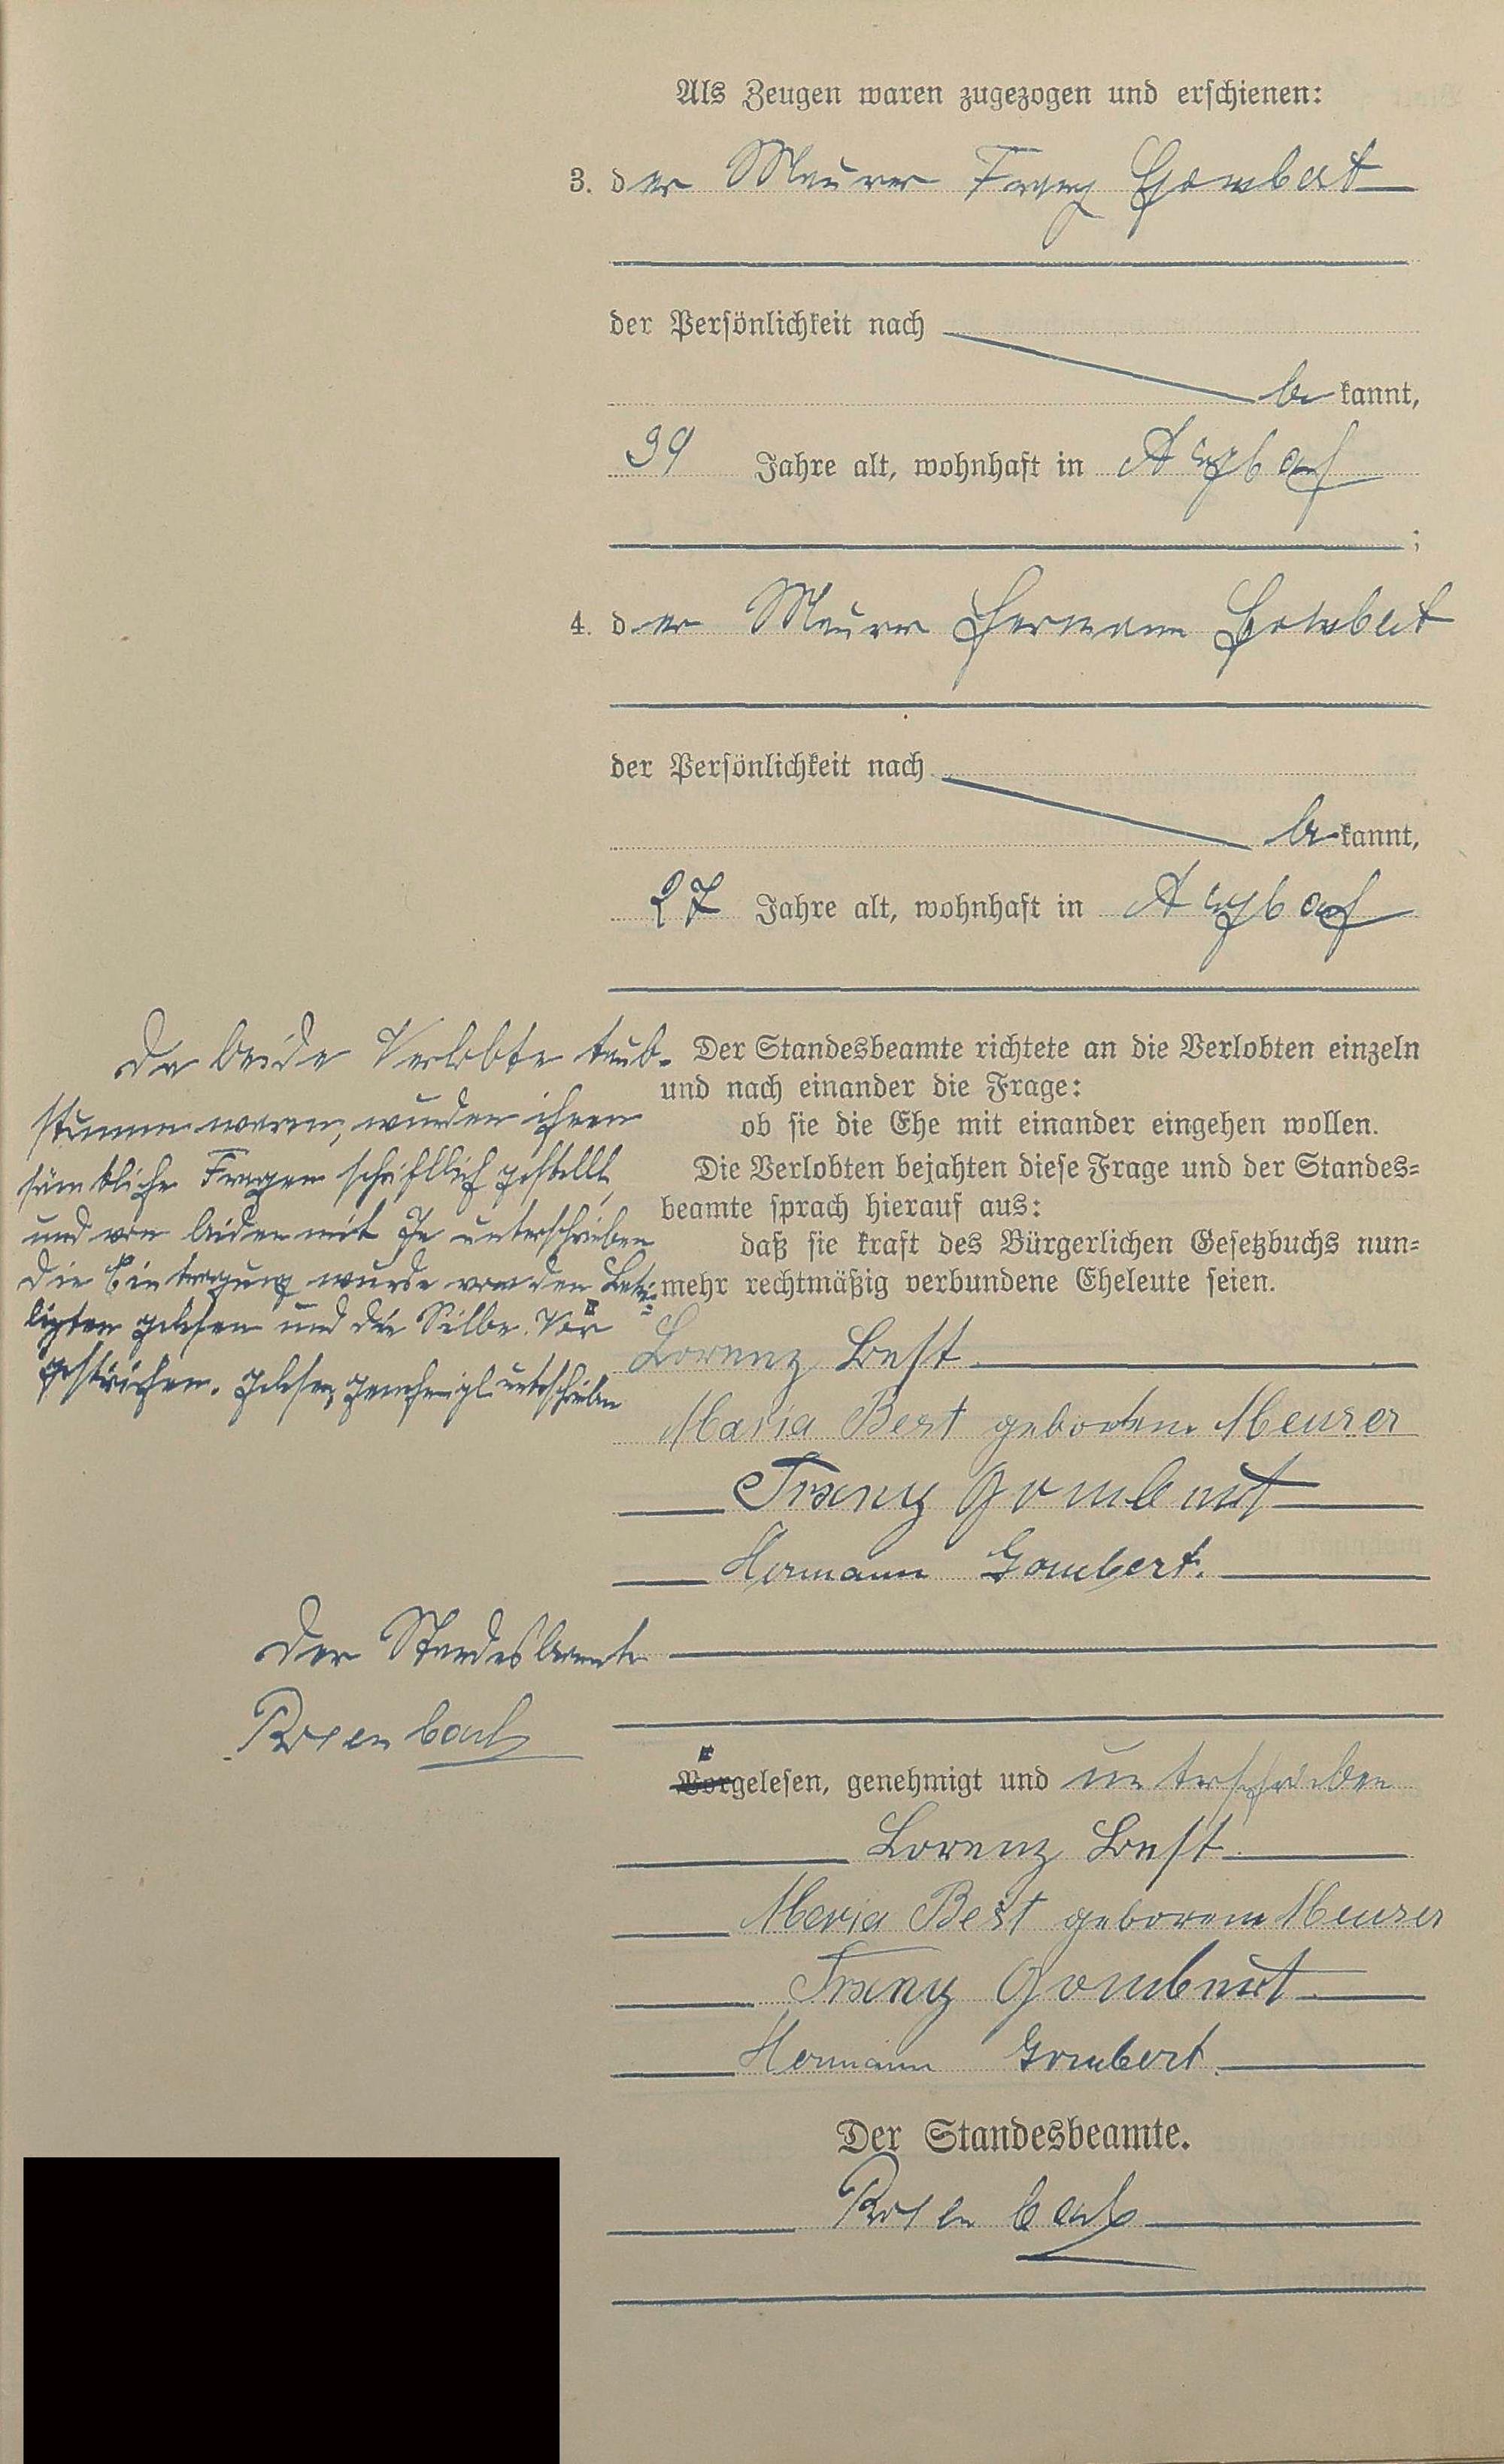 Als Zeugen waren zugezogen und erschienen:
3. der Maurer Franz Gombert
der Persönlichkeit nach
bekannt,
39 Jahre alt, wohnhaft in
;
4. der Maurer Hermann Gombert
der Persönlichkeit nach
bekannt,
27 Jahre alt, wohnhaft in
Da beide Verlobte taub-
stumm waren, wurden ihnen
sämtliche Fragen schriftlich gestellt,
und von beiden mit Ja unterschrieben
Die Eintragung wurde von den Betei=
ligten gelesen und die Silbe "Vor"
gestrichen. Gelesen, genehmigt unterschrieben
Der Standesbeamte richtete an die Verlobten einzeln
und nach einander die Frage:
ob sie die Ehe mit einander eingehen wollen.
Die Verlobten bejahten diese Frage und der Standes=
beamte sprach hierauf aus:
daß sie kraft des Bürgerlichen Gesetzbuchs nun=
mehr rechtmäßig verbundene Eheleute seien.
Lorenz Best
Maria Best geborene Meurer
Franz Gombert
Hermann Gombert.
Der Standesbeamte
Rosenbach
Vorgelesen, genehmigt und unterschrieben
Lorenz Best.
Maria Best geborene Meurer
Franz Gombert.
Hermann Gombert.
Der Standesbeamte.
Rosenbach